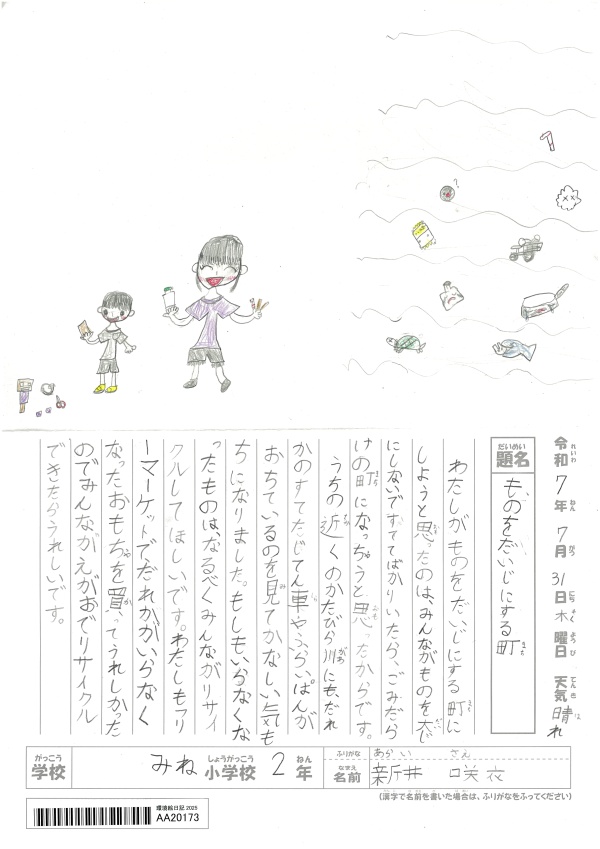 ?
令和7年7月31日木曜日 天気 晴れ
れいわ ねん がつ にち もく ようび てんき は
だいめい
題名 ものをだいじにする町
まち
わたしがものをだいじにする町に
しようと思ったのは、みんながものを大じ
にしないですててばかりいたら、ごみだら
けの町になっちゃうと思ったからです。
うちの近くのかたびら川にも、だれ
かのすてたじてん車やふらいぱんが
おちているのを見てかなしい気も
ちになりました。もしもいらなくな
ったものは、なるべくみんながリサイ
クルしてほしいです。わたしもフリ
ーマーケットでだれかがいらなく
なったおもちゃを買ってうれしかった
のでみんながえがおでリサイクル
できたらうれしいです。
がっこう しょうがっこう ねん
学校 みね 小学校 2年
ふりがな あらい さえ
なまえ
名前 新井 咲衣
(漢字で名前を書いた場合は、ふりがなをふってください)
環境絵日記 2025
AA20173